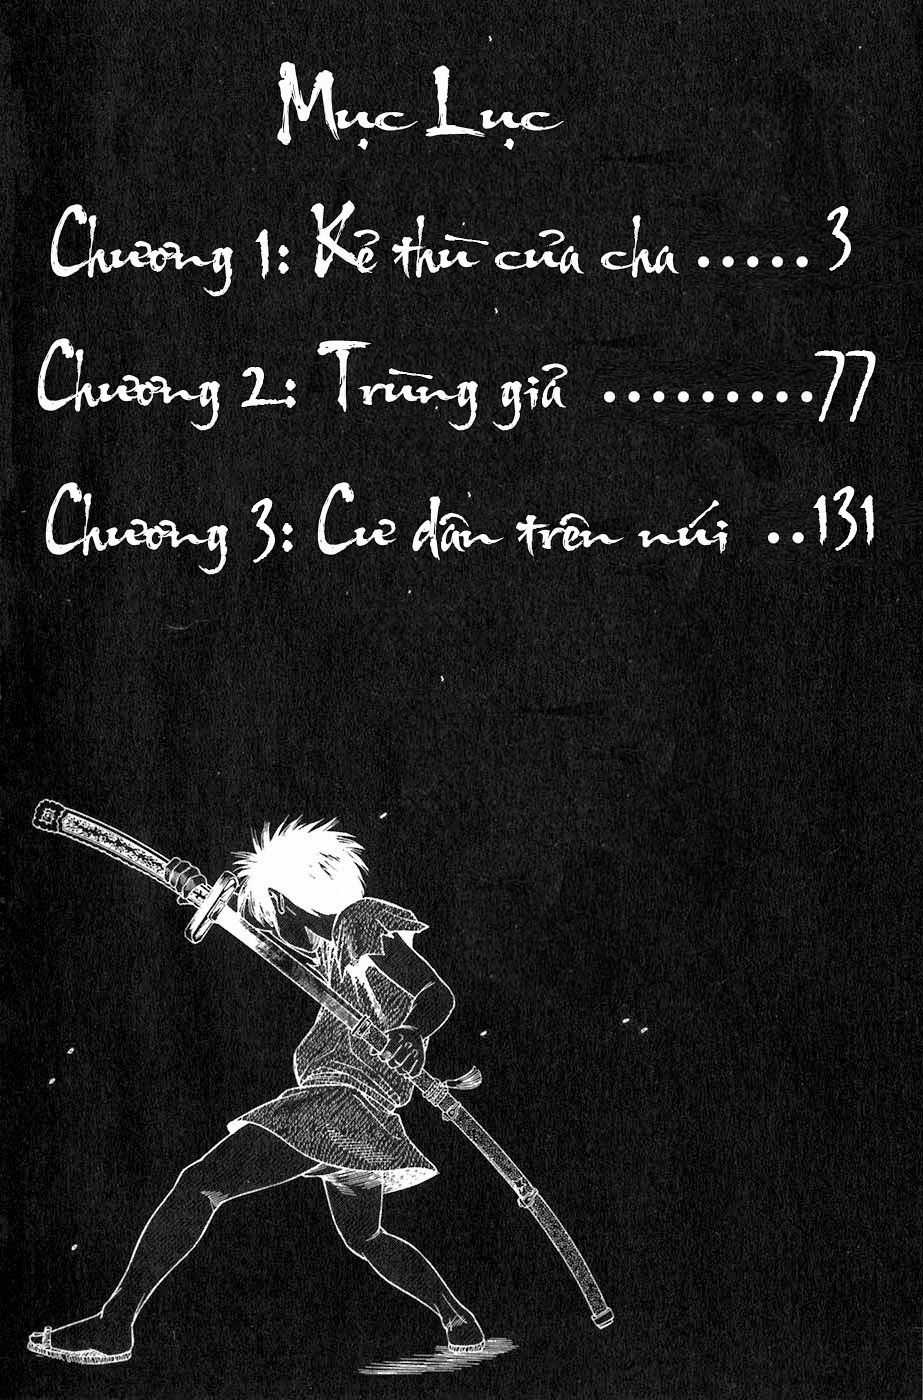 Mục Lục
Chương 1: Kẻ thù của cha ..... 3
Chương 2: Trùng giả .........77
Chương 3: Cư dân trên núi ..131